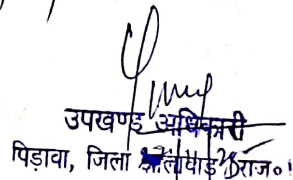 उपखण्ड अधिकारी
पिड़ावा, जिला झालावाड़ राज०